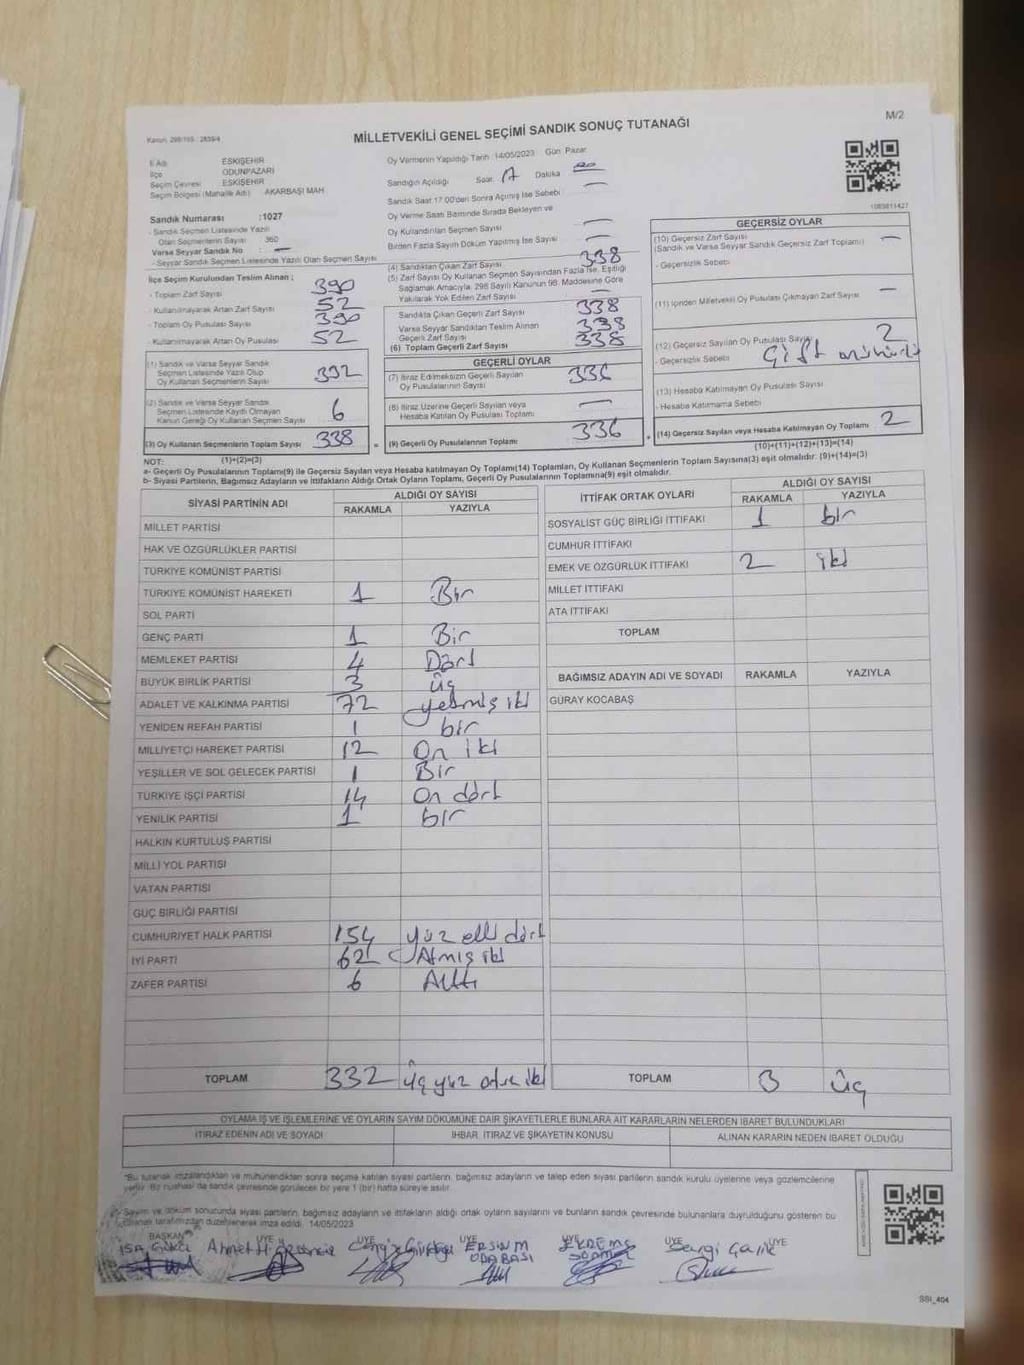 M/2
Kanun: 298/105 2839/4
MİLLETVEKİLİ GENEL SEÇİMİ SANDIK SONUÇ TUTANAĞI
İl Adı ESKİŞEHİR
İlçe ODUNPAZARI
Seçim Çevresi ESKİŞEHİR
Seçim Bölgesi (Mahalle Adı) AKARBAŞI MAH
Sandık Numarası :1027
- Sandık Seçmen Listesinde Yazılı
Olan Seçmenlerin Sayısı 360
Varsa Seyyar Sandık No : —
- Seyyar Sandık Seçmen Listesinde Yazılı Olan Seçmen Sayısı
Oy Vermenin Yapıldığı Tarih :14/05/2023 Gün: Pazar
Sandığın Açıldığı Saat: 17 Dakika
Sandık Saat 17:00'den Sonra Açılmış İse Sebebi —
Oy Verme Saati Bitiminde Sırada Bekleyen ve
Oy Kullandırılan Seçmen Sayısı —
Birden Fazla Sayım Döküm Yapılmış İse Sayısı —
1083811427
İlçe Seçim Kurulundan Teslim Alınan :
- Toplam Zarf Sayısı 390
- Kullanılmayarak Artan Zarf Sayısı 52
- Toplam Oy Pusulası Sayısı 390
- Kullanılmayarak Artan Oy Pusulası 52
(1) Sandık ve Varsa Seyyar Sandık
Seçmen Listesinde Yazılı Olup
Oy Kullanan Seçmenlerin Sayısı 332
(2) Sandık ve Varsa Seyyar Sandık
Seçmen Listesinde Kayıtlı Olmayan
Kanun Gereği Oy Kullanan Seçmen Sayısı 6
(3) Oy Kullanan Seçmenlerin Toplam Sayısı 338
(1)+(2)=(3)
(4) Sandıktan Çıkan Zarf Sayısı 338
(5) Zarf Sayısı Oy Kullanan Seçmen Sayısından Fazla İse, Eşitliği
Sağlamak Amacıyla; 298 Sayılı Kanunun 98. Maddesine Göre
Yakılarak Yok Edilen Zarf Sayısı —
Sandıkta Çıkan Geçerli Zarf Sayısı 338
Varsa Seyyar Sandıktan Teslim Alınan
Geçerli Zarf Sayısı 338
(6) Toplam Geçerli Zarf Sayısı 338
GEÇERLİ OYLAR
(7) İtiraz Edilmeksizin Geçerli Sayılan
Oy Pusulalarının Sayısı 336
(8) İtiraz Üzerine Geçerli Sayılan veya
Hesaba Katılan Oy Pusulası Toplamı —
(9) Geçerli Oy Pusulalarının Toplamı 336
GEÇERSİZ OYLAR
(10) Geçersiz Zarf Sayısı —
(Sandık ve Varsa Seyyar Sandık Geçersiz Zarf Toplamı)
- Geçersizlik Sebebi
(11) İçinden Milletvekili Oy Pusulası Çıkmayan Zarf Sayısı —
(12) Geçersiz Sayılan Oy Pusulası Sayısı 2
- Geçersizlik Sebebi Çift mühürlü
(13) Hesaba Katılmayan Oy Pusulası Sayısı
- Hesaba Katılmama Sebebi
(14) Geçersiz Sayılan veya Hesaba Katılmayan Oy Toplamı 2
(10)+(11)+(12)+(13)=(14)
NOT:
a- Geçerli Oy Pusulalarının Toplamı(9) ile Geçersiz Sayılan veya Hesaba katılmayan Oy Toplamı(14) Toplamları, Oy Kullanan Seçmenlerin Toplam Sayısına(3) eşit olmalıdır. (9)+(14)=(3)
b- Siyasi Partilerin, Bağımsız Adayların ve İttifakların Aldığı Ortak Oyların Toplamı, Geçerli Oy Pusulalarının Toplamına(9) eşit olmalıdır.
SİYASİ PARTİNİN ADI ALDIĞI OY SAYISI
RAKAMLA YAZIYLA
MİLLET PARTİSİ
HAK VE ÖZGÜRLÜKLER PARTİSİ
TÜRKİYE KOMÜNİST PARTİSİ
TÜRKİYE KOMÜNİST HAREKETİ 1 Bir
SOL PARTİ
GENÇ PARTİ 1 Bir
MEMLEKET PARTİSİ 4 Dört
BÜYÜK BİRLİK PARTİSİ 3 üç
ADALET VE KALKINMA PARTİSİ 72 yetmiş iki
YENİDEN REFAH PARTİSİ 1 bir
MİLLİYETÇİ HAREKET PARTİSİ 12 On iki
YEŞİLLER VE SOL GELECEK PARTİSİ 1 Bir
TÜRKİYE İŞÇİ PARTİSİ 14 On dört
YENİLİK PARTİSİ 1 bir
HALKIN KURTULUŞ PARTİSİ
MİLLİ YOL PARTİSİ
VATAN PARTİSİ
GÜÇ BİRLİĞİ PARTİSİ
CUMHURİYET HALK PARTİSİ 154 yüz elli dört
İYİ PARTİ 62 Atmış iki
ZAFER PARTİSİ 6 Altı
TOPLAM 332 üç yüz otuz iki
İTTİFAK ORTAK OYLARI ALDIĞI OY SAYISI
RAKAMLA YAZIYLA
SOSYALİST GÜÇ BİRLİĞİ İTTİFAKI 1 bir
CUMHUR İTTİFAKI
EMEK VE ÖZGÜRLÜK İTTİFAKI 2 iki
MİLLET İTTİFAKI
ATA İTTİFAKI
TOPLAM
BAĞIMSIZ ADAYIN ADI VE SOYADI RAKAMLA YAZIYLA
GÜRAY KOCABAŞ
TOPLAM 3 üç
OYLAMA İŞ VE İŞLEMLERİNE VE OYLARIN SAYIM DÖKÜMÜNE DAİR ŞİKAYETLERLE BUNLARA AİT KARARLARIN NELERDEN İBARET BULUNDUKLARI
İTİRAZ EDENİN ADI VE SOYADI İHBAR, İTİRAZ VE ŞİKAYETİN KONUSU ALINAN KARARIN NEDEN İBARET OLDUĞU
*Bu tutanak imzalandıktan ve mühürlendikten sonra seçime katılan siyasi partilerin, bağımsız adayların ve talep eden siyasi partilerin sandık kurulu üyelerine veya gözlemcilerine
verilir. Bir nüshası da sandık çevresinde görülecek bir yere 1 (bir) hafta süreyle asılır.
Sayım ve döküm sonucunda siyasi partilerin, bağımsız adayların ve ittifakların aldığı ortak oyların sayılarını ve bunların sandık çevresinde bulunanlara duyrulduğunu gösteren bu
tutanak tarafımızdan düzenlenerek imza edildi. 14/05/2023
BAŞKAN ÜYE ÜYE ÜYE ÜYE ÜYE ÜYE
ERSİN M
ODABAŞI
SSİ_404